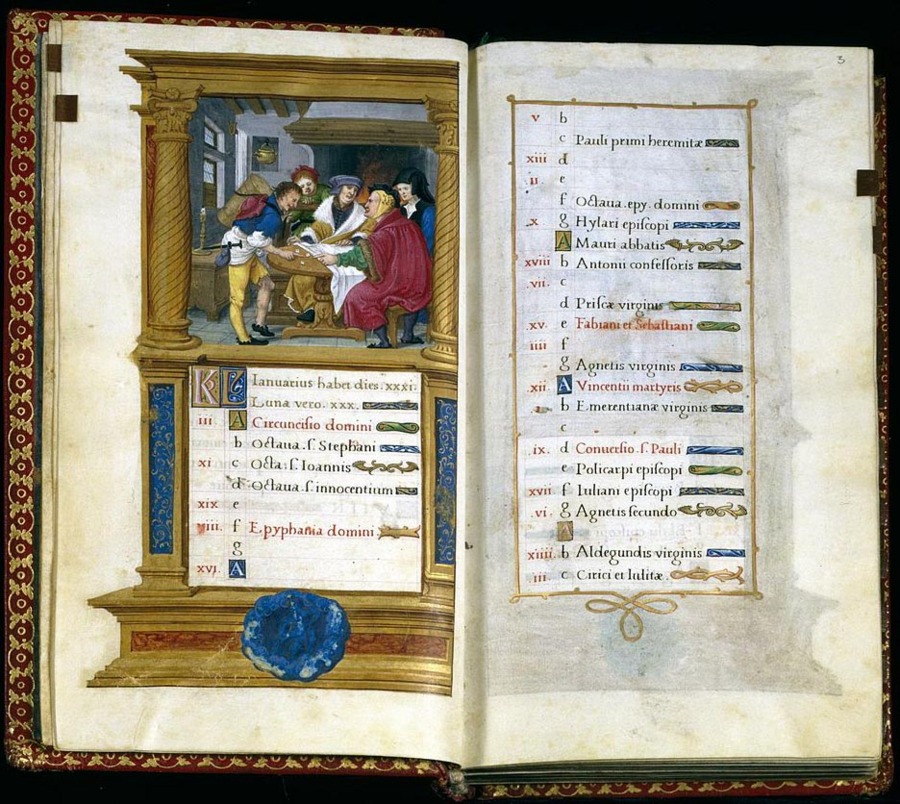 KL Ianuarius habet dies .xxxi.
Luna vero. xxx.
iii A Circuncisio domini
b Octaua .s. Stephani
xi c Octa: s. Ioannis
d Octaua .s. innocentium
xix e
viii. f Epyphania domini
g
xvi. A
3
v b
c Pauli primi heremitæ
xiii d
ii e
f Octaua .epy. domini
.x g Hylari episcopi
A Mauri abbatis
xviii b Antonii confessoris
vii. c
d Priscæ virginis
xv. e Fabiani et Sebastiani
iiii f
g Agnetis virginis
xii. A Vincentii martyris
b Emerentianæ virginis
c
.ix. d Conuersio .s. Pauli
e Policarpi episcopi
xvii f Iuliani episcopi
.vi. g Agnetis secundo
A
xiiii. b Aldegundis virginis
iii c Cirici et Iulitæ.